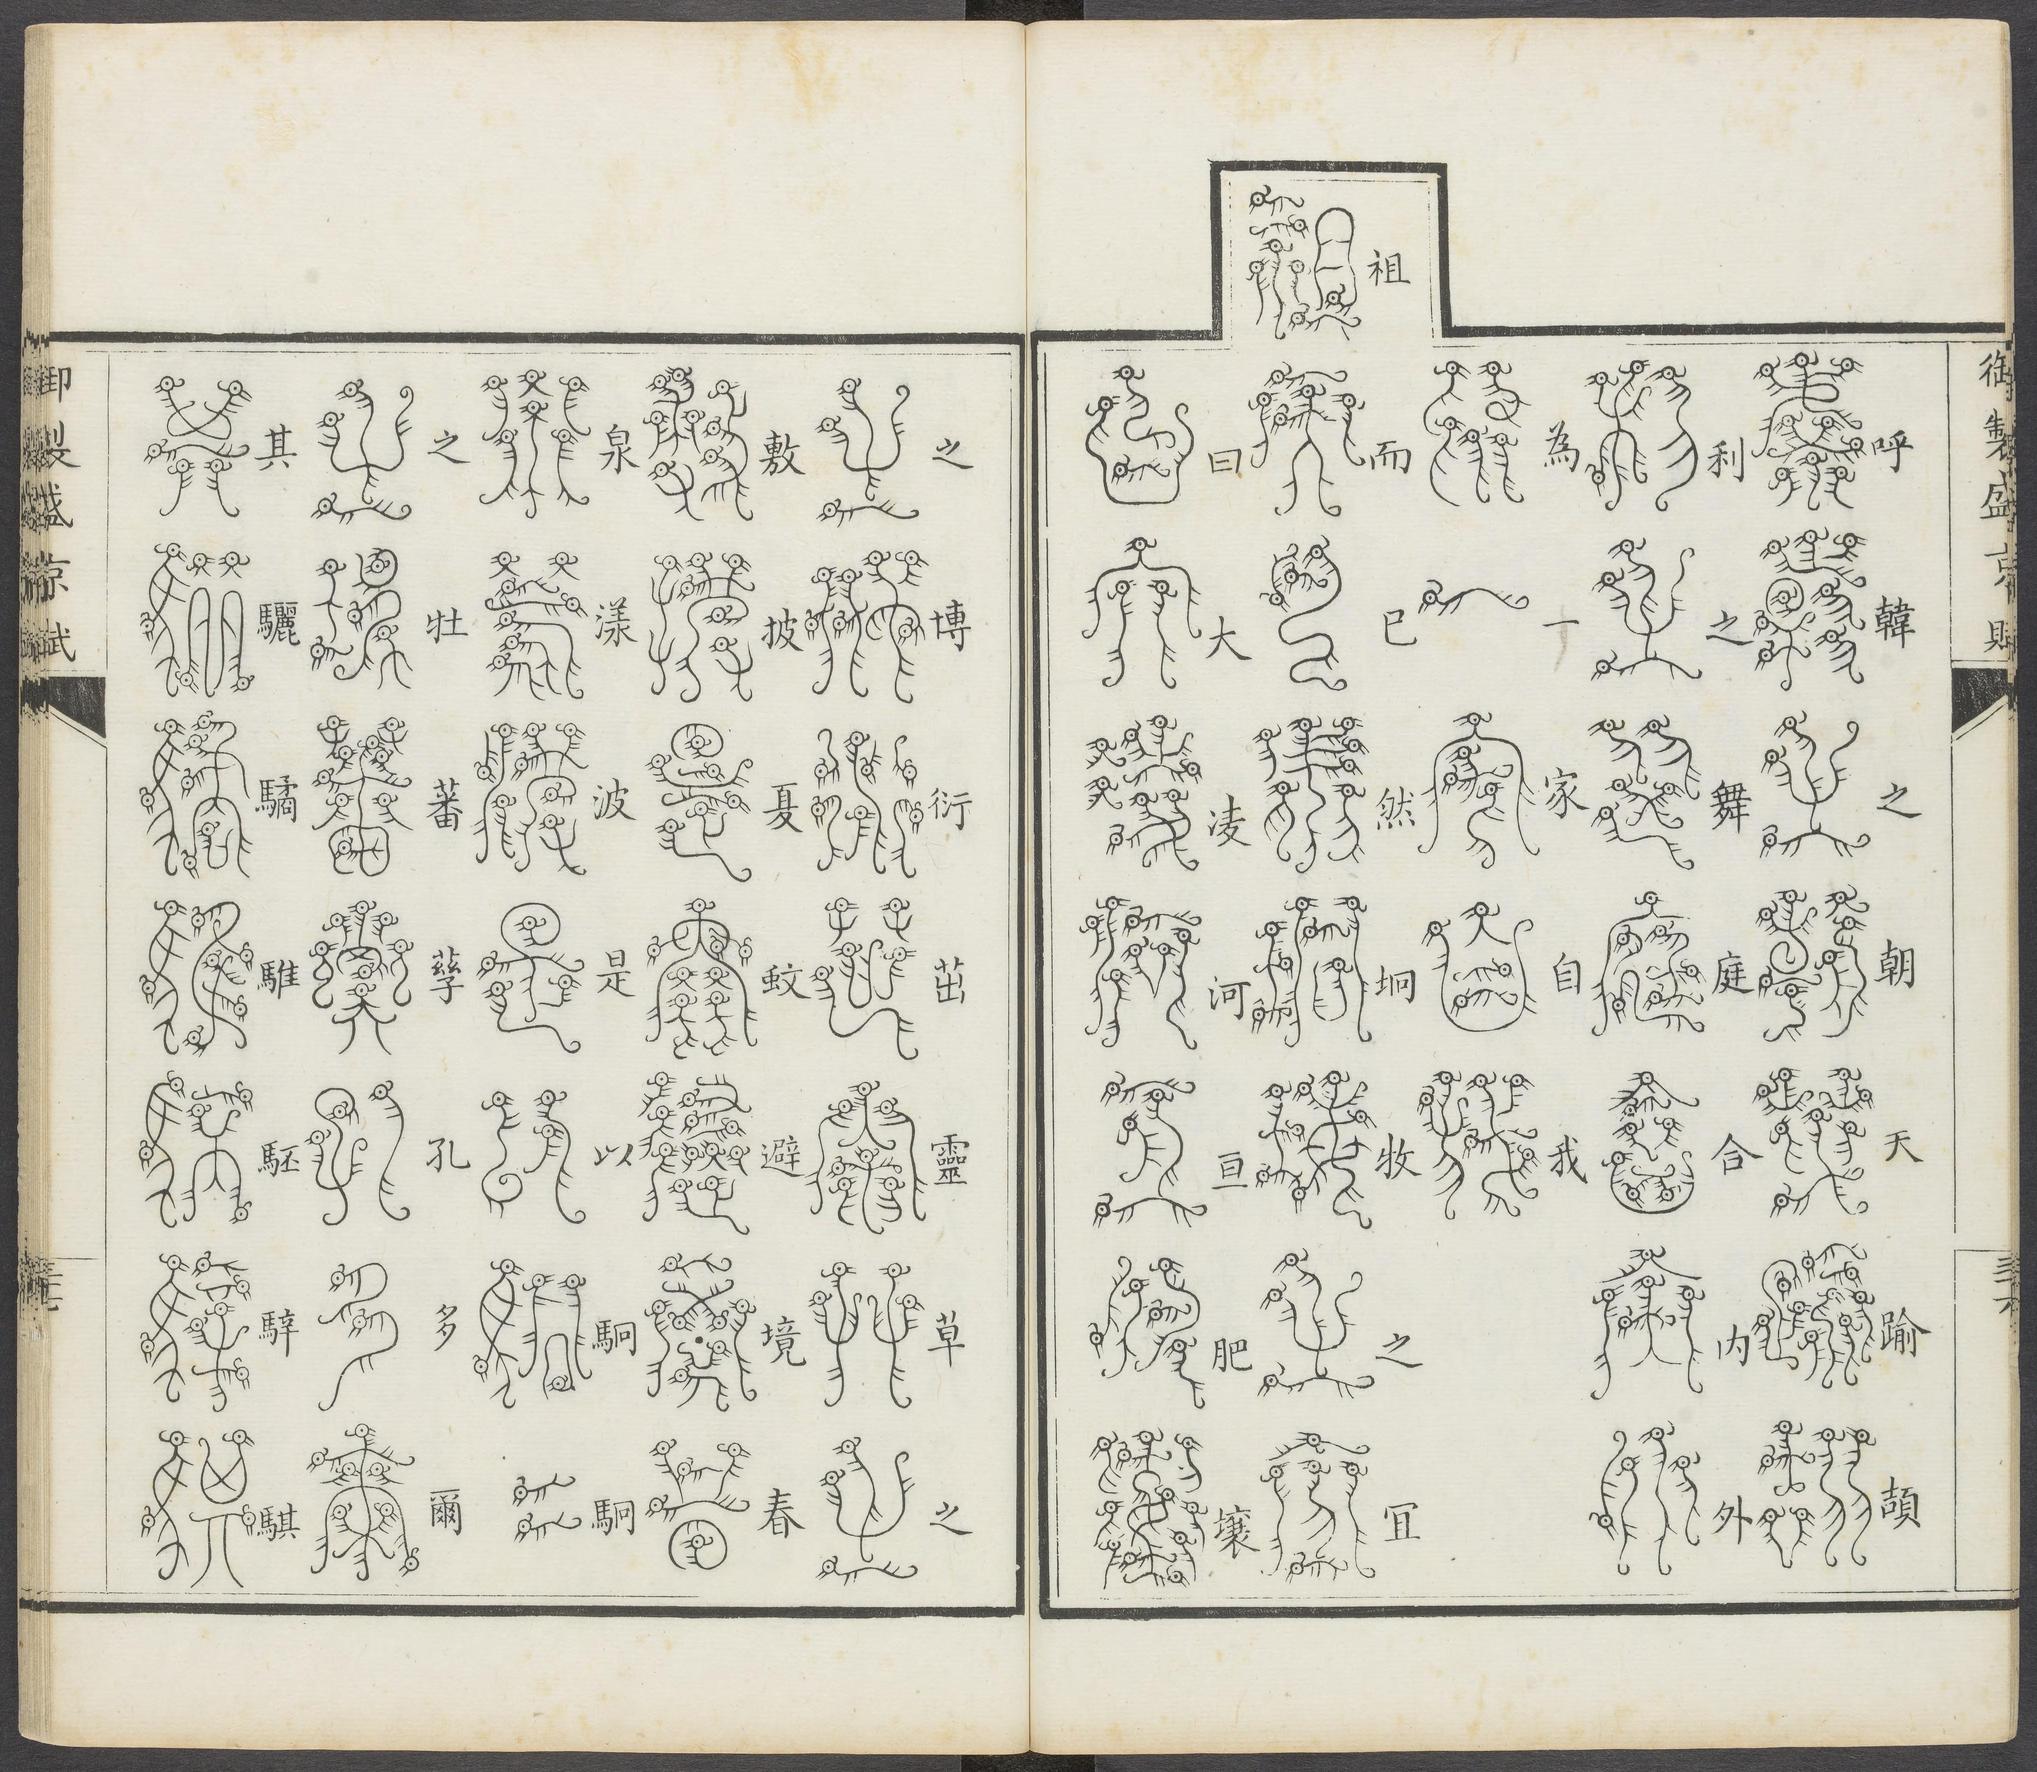 御製盛京賦
呼韓之朝天踰頡
利之舞庭合内外
為一家自我
祖而已然坰牧之冝
曰大凌河亘肥壤
之博衍茁靈草之
敷披夏蚊避境春
泉漾波是以駉駉
之牡蕃孳孔多爾
其驪驈騅駓騂騏
御製盛京賦